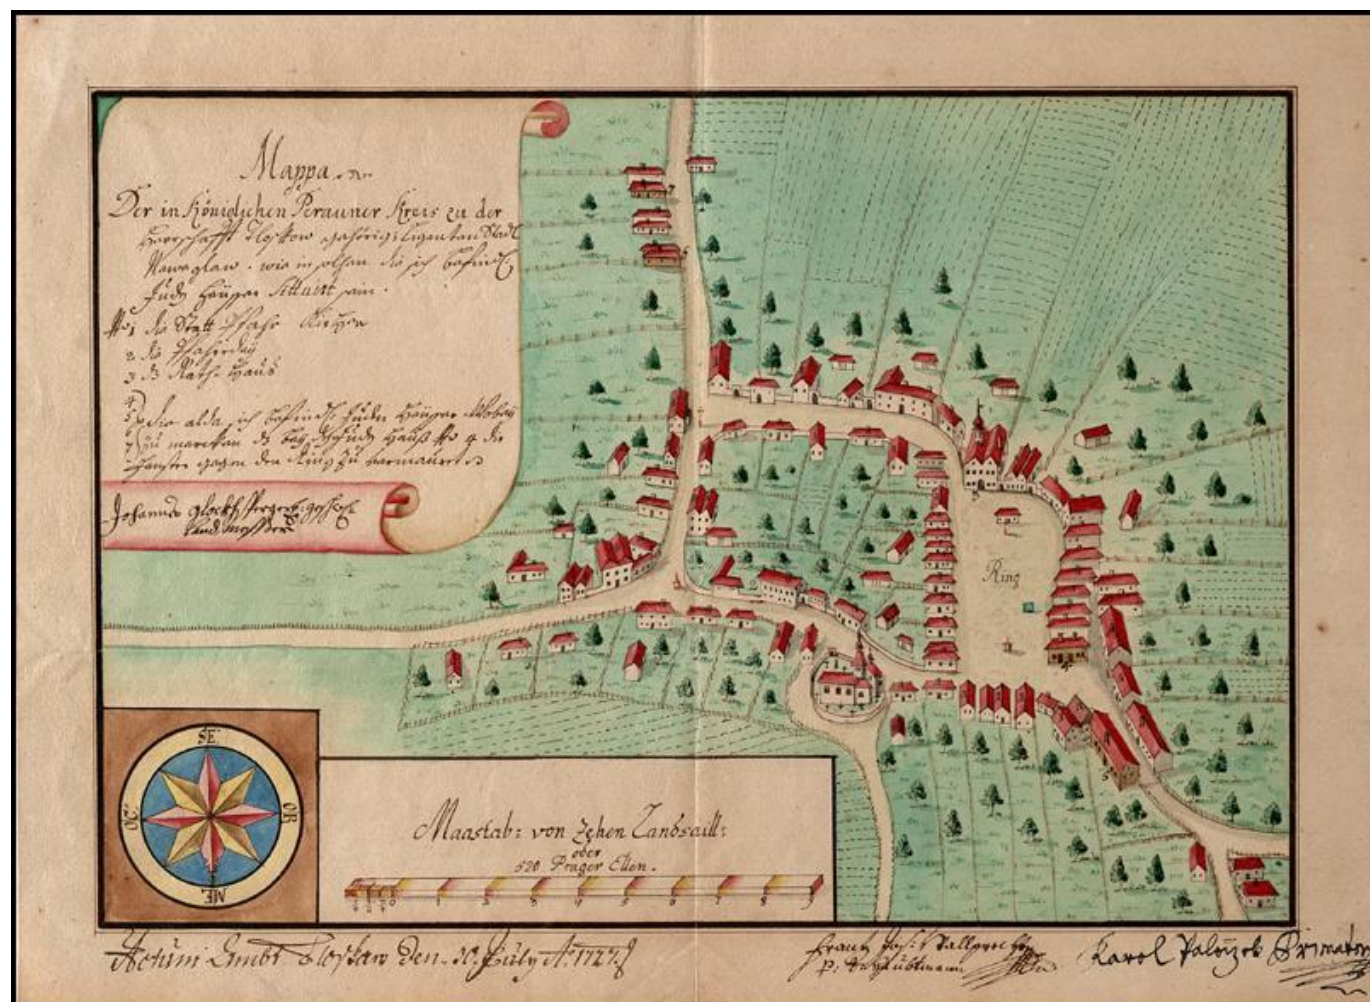 Mappa
Der in Königlichen Perauner Kreis zu der
Herrschafft Tloskow gehörig: Ligenten Stadl
Nawaglaw. wie in solchen die sich befindl:
Juden Häüser Situirt sein.
No 1 die Statt Pfahr Kirchen
2 die Pfaherdey
3 das Rath-Haus
4
5 die alda sich befindl: Juden Häüser. Wobey
6
7 zu mercken das bey Juden Hauß No 4 die
Fenster gegen den Ring zu vermauert
Johannes Glockhsperger: geschw:
Land Messer
Ring
1
2
3
4
5
6
7
SE
OR
ME
OC
Maastab: von Zehen Landsaill:
oder
520 Prager Ellen.
0 1 2 3 4 5 6 7 8 9
Actum Ambt Tloskaw Den. 30. July A: 1727
Frantz Jos:
P: Haubtmann
Karol Primator